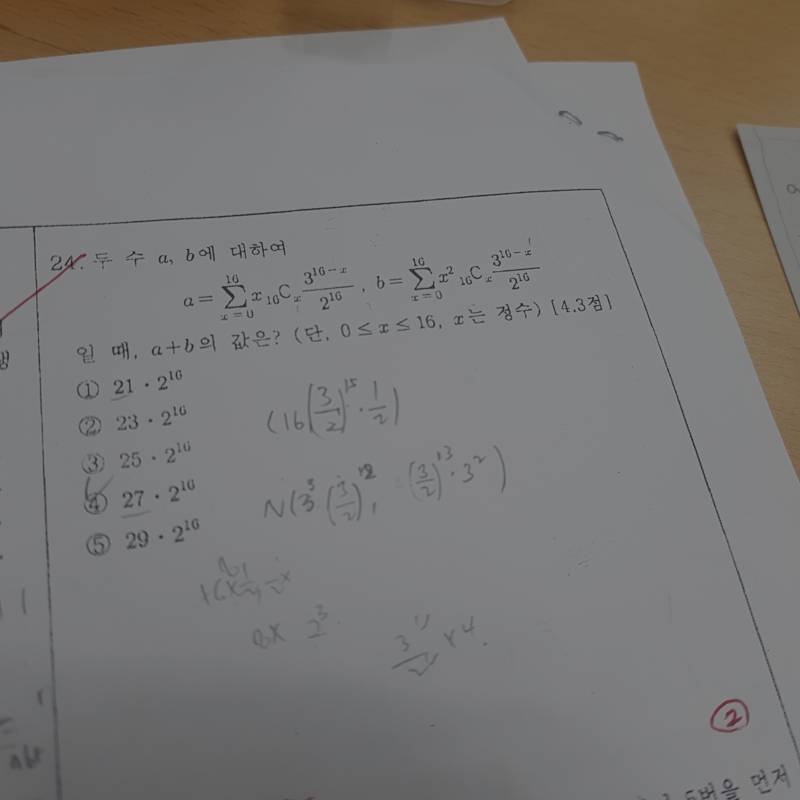 24. 두 수 a, b에 대하여
a = \sum_{x=0}^{16} x {}_{16}C_x \frac{3^{16-x}}{2^{16}}, b = \sum_{x=0}^{16} x^2 {}_{16}C_x \frac{3^{16-x}}{2^{16}}
일 때, a+b의 값은? (단, 0 ≤ x ≤ 16, x는 정수) [4.3점]
① 21 · 2^{16}
② 23 · 2^{16}
③ 25 · 2^{16}
④ 27 · 2^{16}
⑤ 29 · 2^{16}
(16(\frac{3}{2})^{15} · \frac{1}{2})
N(3^3 (\frac{3}{2})^{12}, (\frac{3}{2})^{13} · 3^2)
8× 2^3
②
먼저